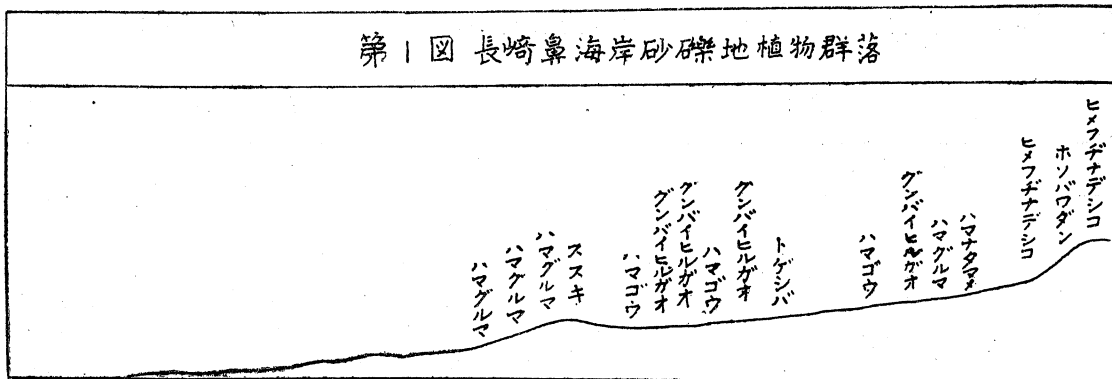 第1図 長崎鼻海岸砂礫地植物群落
ハマグルマ
ハマグルマ
ハマグルマ
ススキ
ハマゴウ
グンバイヒルガオ
グンバイヒルガオ
ハマゴウ
グンバイヒルガオ
トゲシバ
ハマゴウ
グンバイヒルガオ
ハマグルマ
ハマナタマメ
ヒメフヂナデシコ
ホソバワダン
ヒメフヂナデシコ